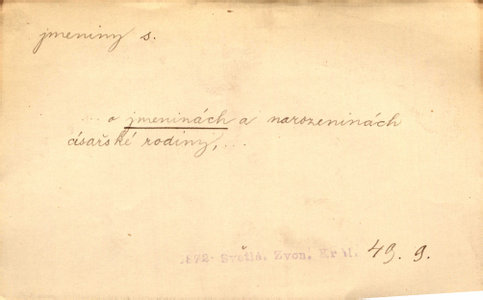 jmeniny s.
... o jmeninách a narozeninách
císařské rodiny, ...
1872 Světlá. Zvon. Král. 49. 9.